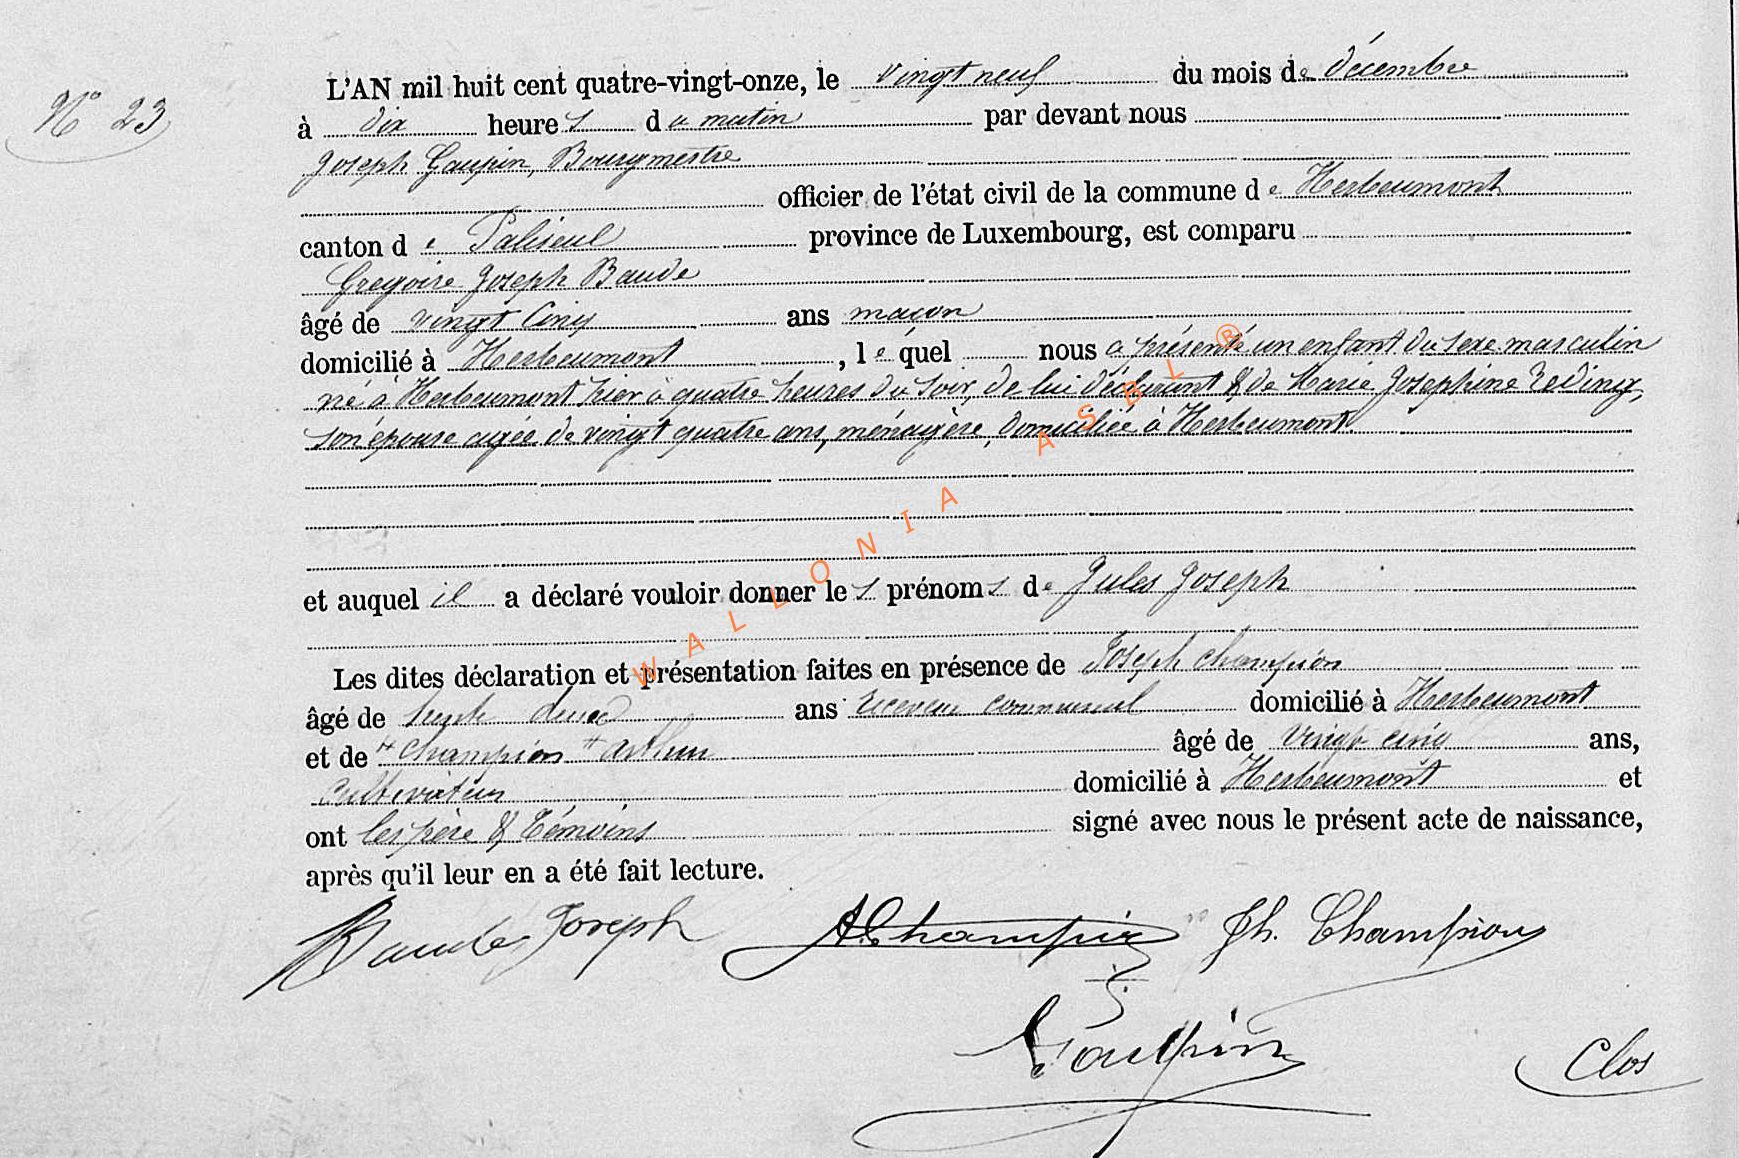 N° 23
L'AN mil huit cent quatre-vingt-onze, le vingt neuf du mois de décembre
à dix heures du matin par devant nous
Joseph Gaupin, Bourgmestre
officier de l'état civil de la commune de Herbeumont
canton de Paliseul province de Luxembourg, est comparu
Gregoire Joseph Baude
âgé de vingt cinq ans maçon
domicilié à Herbeumont, lequel nous a présenté un enfant du sexe masculin
né à Herbeumont hier à quatre heures du soir, de lui déclarant & de Marie Josephine Reding,
son épouse agée de vingt quatre ans, ménagère, domiciliée à Herbeumont
et auquel il a déclaré vouloir donner les prénoms de Jules Joseph
Les dites déclaration et présentation faites en présence de Joseph Champion
âgé de ans receveur communal domicilié à Herbeumont
et de Champion arthur âgé de vingt cinq ans,
Cultivateur domicilié à Herbeumont et
ont les père & témoins signé avec nous le présent acte de naissance,
après qu'il leur en a été fait lecture.
Baude Joseph A Champion Jh. Champion
Gaupin
Clos
WALLONIA ASBL ®